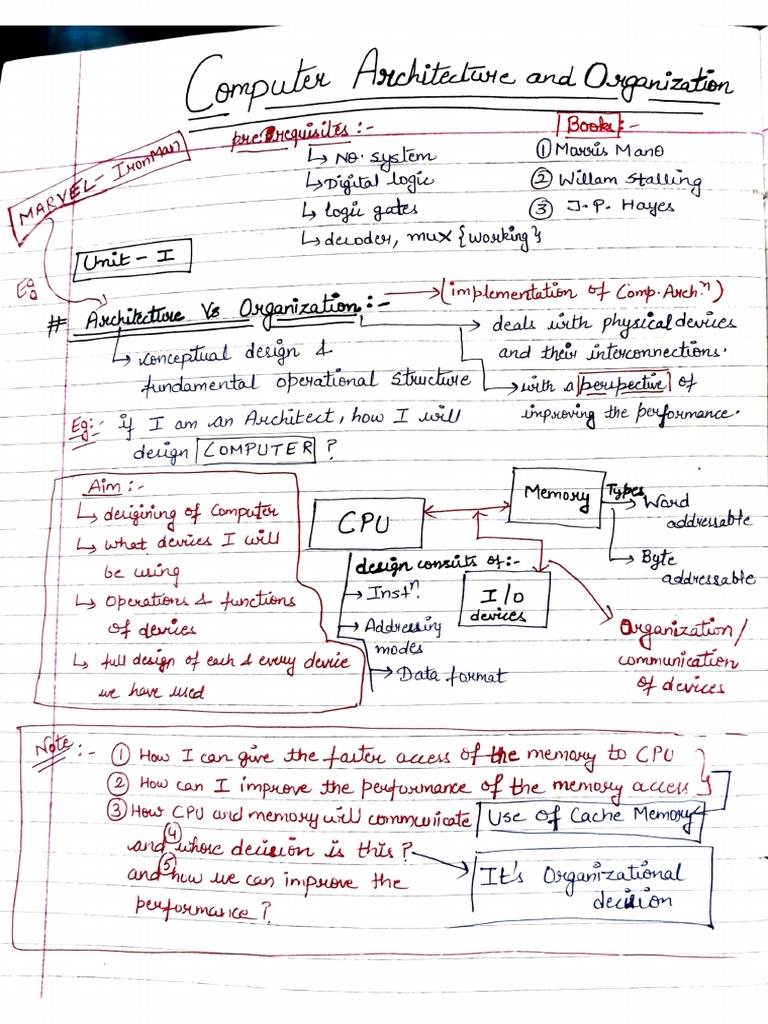 Computer Architecture and Organization
MARVEL - IronMan
Pre Requisites :-
↳ No. system
↳ Digital logic
↳ logic gates
↳ decoder, mux {working}
Books :-
① Marris Mano
② Willam Stalling
③ J.P. Hayes
Unit - I
Eg
# Architecture Vs Organization :- → (implementation of Comp. Archⁿ.)
↳ conceptual design &
fundamental operational structure
→ deals with physical devices
and their interconnections.
→ with a perspective of
improving the performance.
Eg:- if I am an Architect, how I will
design COMPUTER ?
Aim :-
↳ designing of Computer
↳ what devices I will
be using
↳ Operations & functions
of devices
↳ full design of each & every device
we have used
CPU
Memory
Types
→ Word
addressable
→ Byte
addressable
design consits of :-
→ Instⁿ.
→ Addressing
modes
→ Data format
I/O
devices
Organization/
communication
of devices
Note :- ① How I can give the faster access of the memory to CPU
② How can I improve the performance of the memory access
③ How CPU and memory will commuicate
Use of Cache Memory
④
and whose decision is this ?
It's Organizational
decision
⑤
and how we can improve the
performance ?